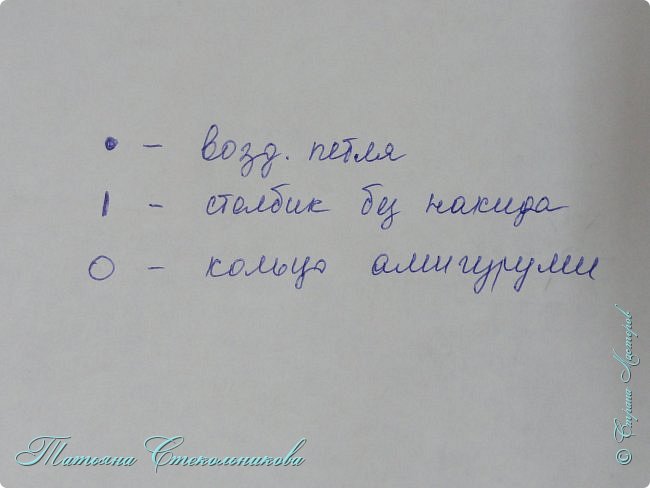 • – возд. петля
| – столбик без накида
О – кольцо амигуруми
Татьяна Стекольникова
© Страна Мастеров